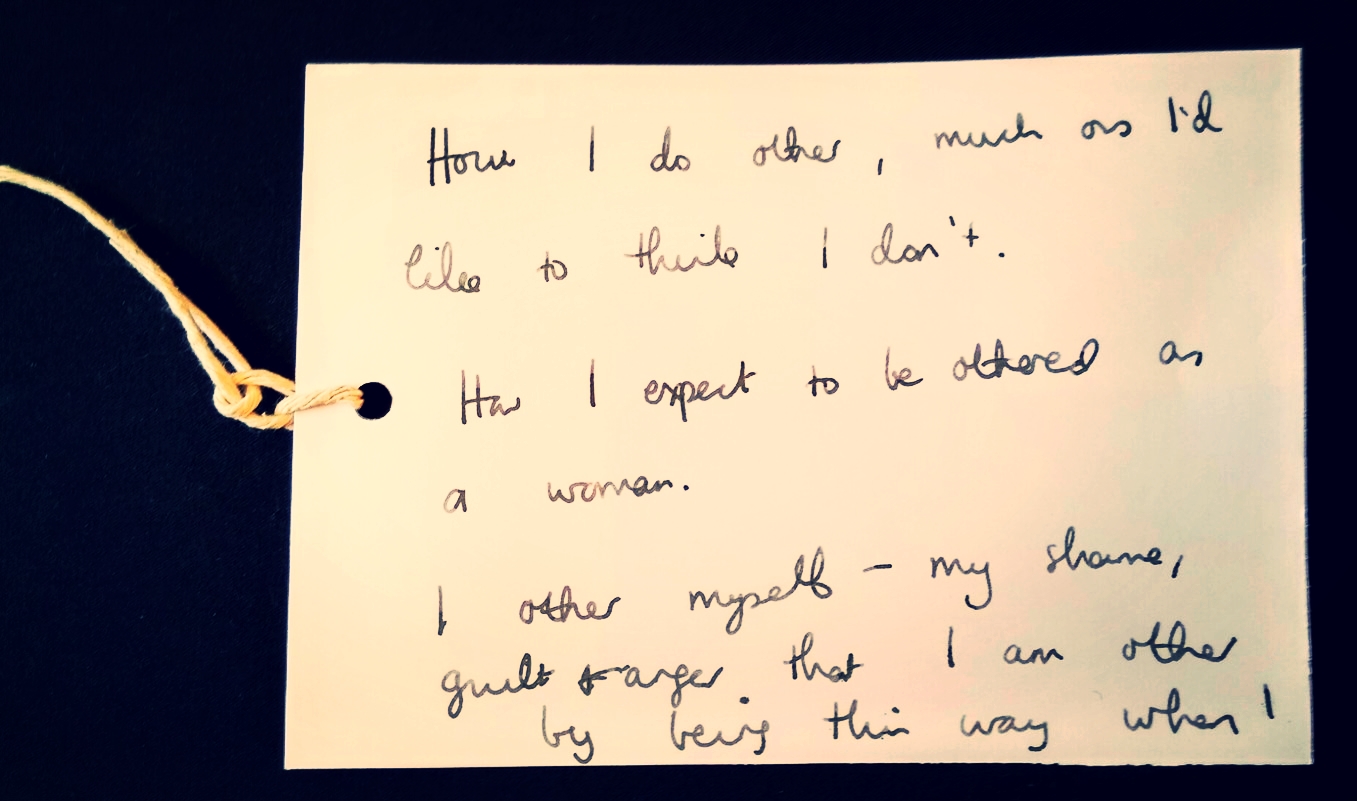 How I do other, much as I'd
like to think I don't.
How I expect to be othered as
a woman.
I other myself - my shame,
guilt & anger. that I am other
by being this way when I